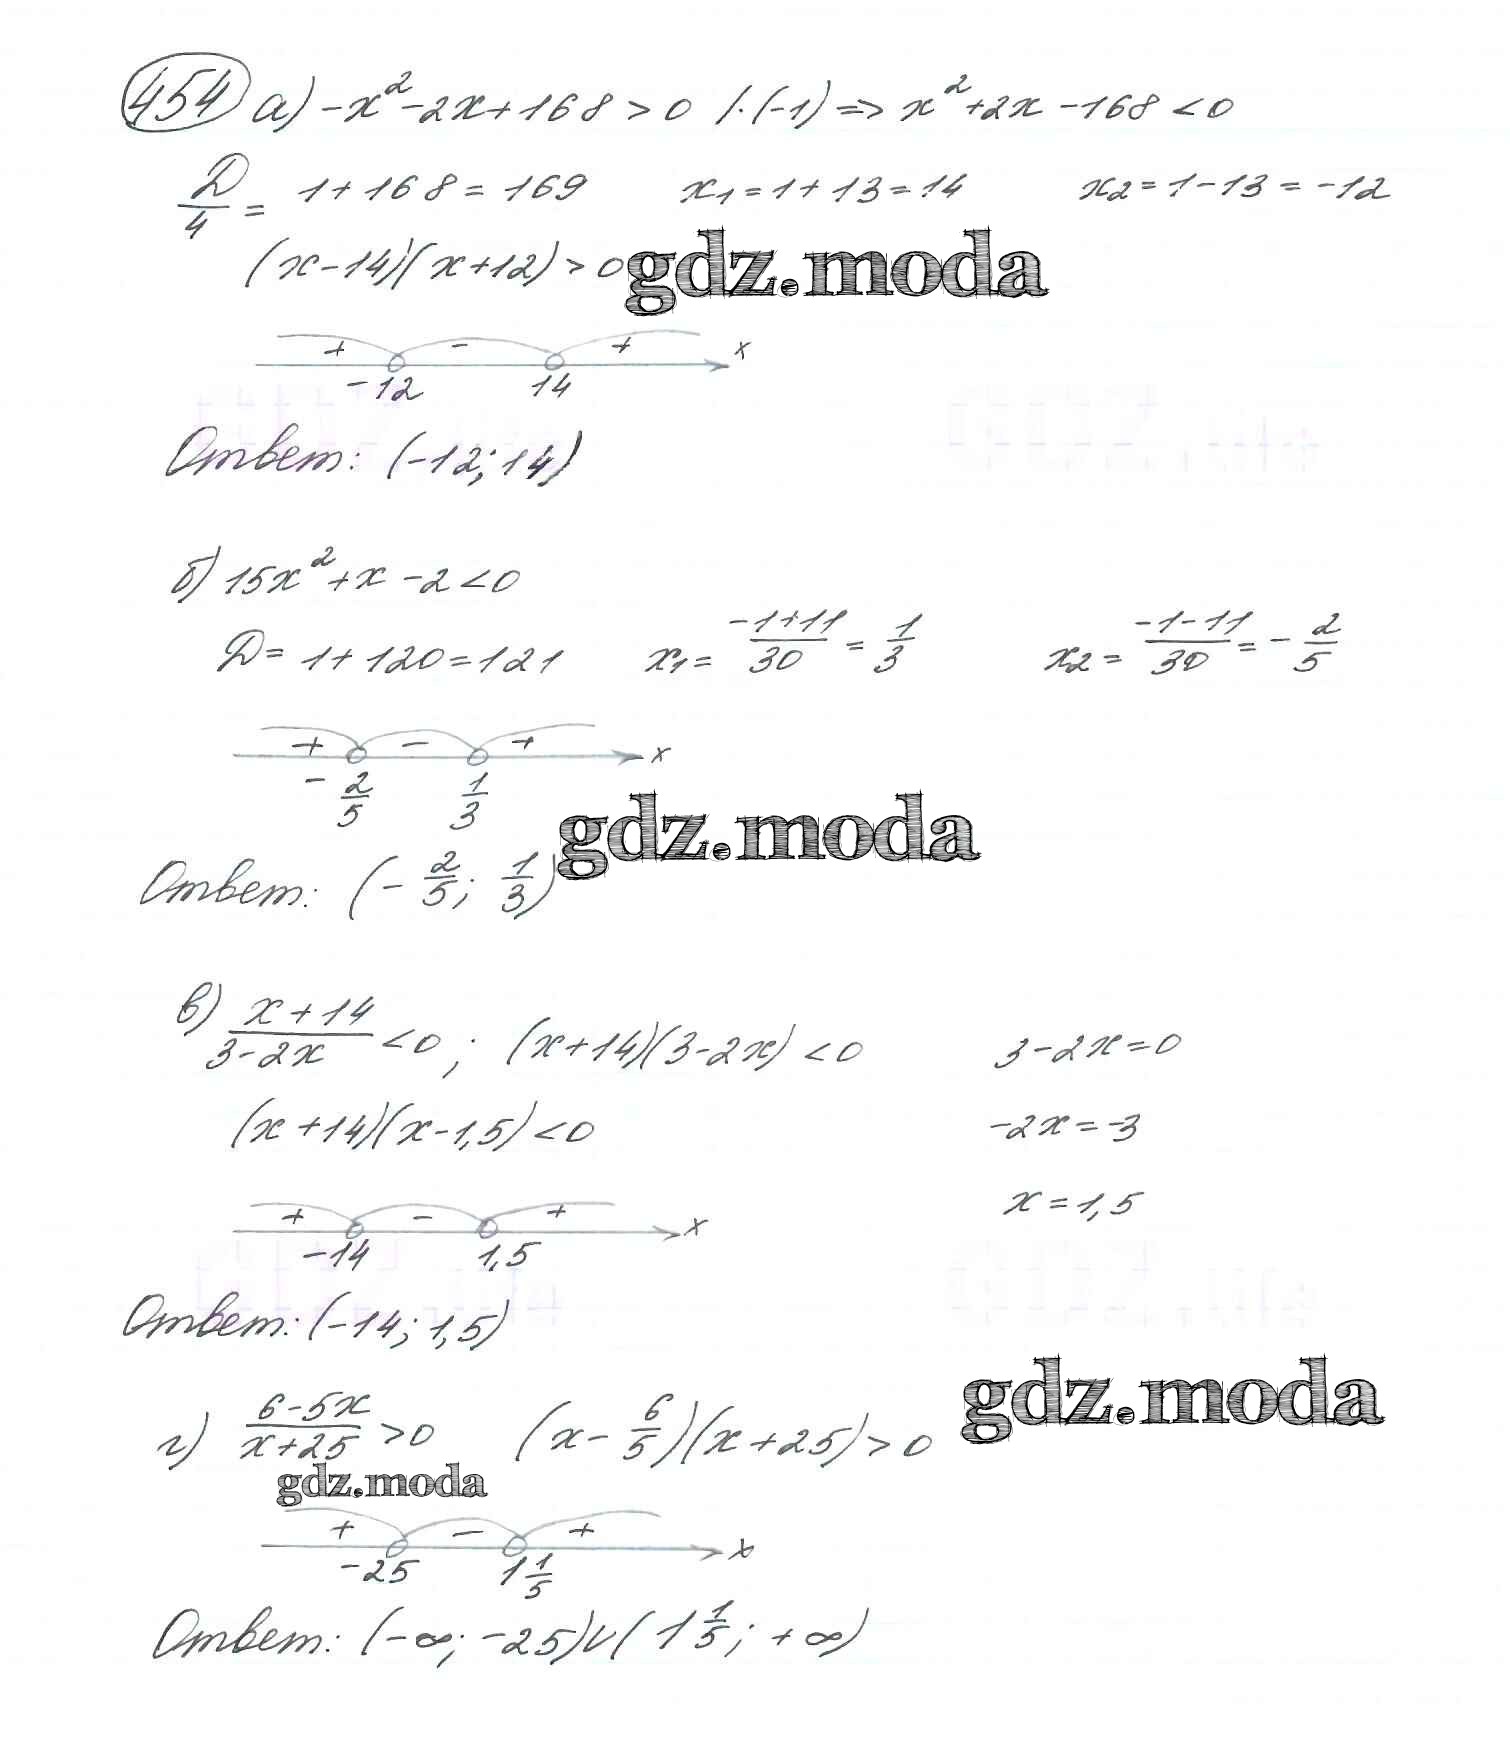 454 а) -x²-2x+168>0 /·(-1) => x²+2x-168<0
D/4 = 1+168=169 x₁=1+13=14 x₂=1-13=-12
(x-14)(x+12)>0 gdz.moda
+ - + x
-12 14
Ответ: (-12; 14)
б) 15x²+x-2<0
D=1+120=121 x₁= (-1+11)/30 = 1/3 x₂= (-1-11)/30 = -2/5
+ - + x
-2/5 1/3
gdz.moda
Ответ: (-2/5; 1/3)
в) (x+14)/(3-2x) <0; (x+14)(3-2x)<0 3-2x=0
(x+14)(x-1,5)<0 -2x=-3
x=1,5
+ - + x
-14 1,5
Ответ: (-14; 1,5)
gdz.moda
г) (6-5x)/(x+25) >0 (x-6/5)(x+25)>0
gdz.moda
+ - + x
-25 1 1/5
Ответ: (-∞; -25)∪(1 1/5; +∞)